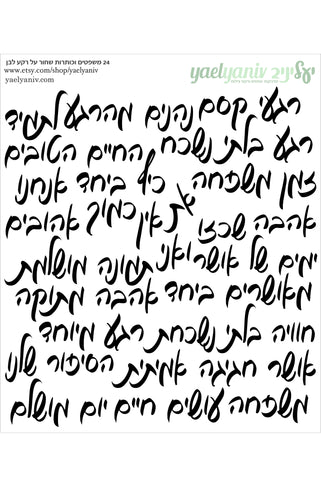 24 משפטים וכותרות שחור על רקע לבן
www.etsy.com/shop/yaelyaniv
yaelyaniv.com
yaelyaniv יעל יניב
רגעי קסם נהנים מהרגע לתמיד
רגע בלתי נשכח החיים הטובים
זמן משפחה כיף ביחד אנחנו
אהבה שכזו את אין כמוך אהובים
ימים של אושר ואני תמונה מושלמת
מאושרים ביחד אהבה מתוקה
חוויה בלתי נשכחת רגע מיוחד
אושר חגיגה אמיתית הסיפור שלנו
משפחה עושים חיים יום מושלם